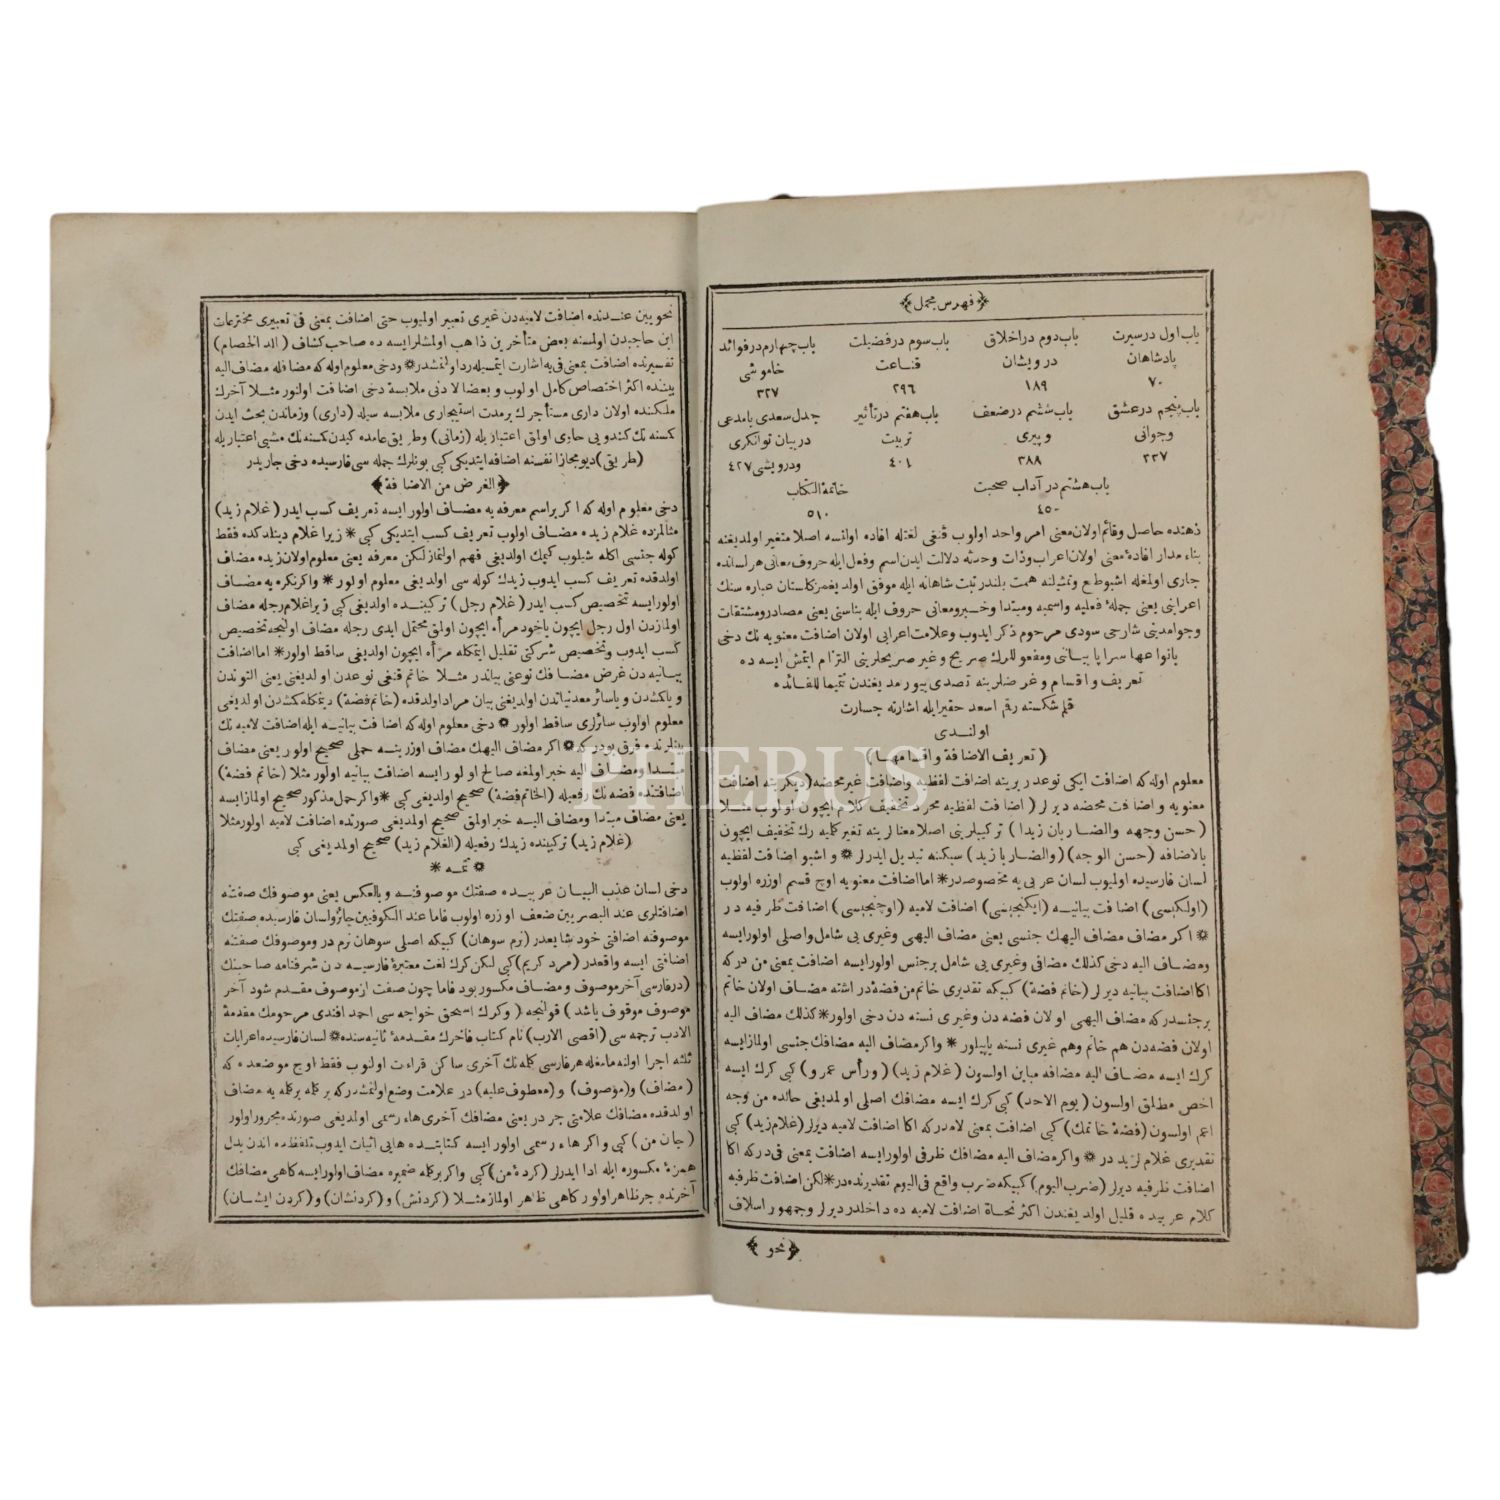 ﴿ فهرس مجمل ﴾
باب اول در سیرت باب دوم در اخلاق باب سوم در فضیلت باب چهارم در فوائد
پادشاهان درویشان قناعت خاموشی
٧٠ ١٨٩ ٢٩٦ ٣٢٧
باب پنجم در عشق باب ششم در ضعف باب هفتم در تأثیر جدل سعدی با مدعی
وجوانی وپیری تربیت در بیان توانکری
٣٣٧ ٣٨٨ ٤٠١ ودرویشی ٤٢٧
باب هشتم در آداب صحبت خاتمة الکتاب
٤٥٠ ٥١٠
ذهنده حاصل وقائم اولان معنی امر واحد اولوب قنغی لغتله افاده اولنسه اصلا متغیر اولمدیغنه
بناء مدار افادۀ معنی اولان اعراب وذات وحدثه دلالت ایدن اسم وفعل ایله حروف معانی هر لسانده
جاری اولمغله اشبو طبع وتمثیلنه همت بلند رتبت شاهانه ایله موفق اولدیغمز کلستان عباره سنك
اعرابنی یعنی جملۀ فعلیه واسمیه ومبتدا وخبر ومعانی حروف ایله بناسنی یعنی مصادر ومشتقات
وجوامدینی شارحی سودی مرحوم ذکر ایدوب وعلامت اعرابی اولان اضافت معنویه نك دخی
بانواعها سراپا بیانی ومفعوللرك صریح وغیر صریحلرینی التزام ایتمش ایسه ده
تعریف واقسام وغرضلرینه تصدی بیورمدیغندن تتمیما للفائده
قلم شکسته رقم اسعد حقیر ایله اشارته جسارت
اولندی
( تعریف الاضافة واقسامها )
معلوم اوله که اضافت ایکی نوعدر برینه اضافت لفظیه واضافت غیر محضه (دیکرینه اضافت
معنویه واضافت محضه دیرلر ( اضافت لفظیه مجرد تخفیف کلام ایچون اولوب مثلا
(حسن وجهه والضارب زیدا ) ترکیبلرینی اصلا معنالرینه تغیر کلمیه رك تخفیف ایچون
بالاضافه (حسن الوجه) (والضارب زید) سبکنه تبدیل ایدرلر ❊ واشبو اضافت لفظیه
لسان فارسیده اولمیوب لسان عربی یه مخصوصدر❊ اما اضافت معنویه اوچ قسم اوزره اولوب
(اولکیسی) اضافت بیانیه (ایکنجیسی) اضافت لامیه (اوچنجیسی) اضافت ظرفیه در
❊ اکر مضاف مضاف الیهك جنسی یعنی مضاف الیهی وغیری یی شامل واصلی اولورایسه
ومضاف الیه دخی کذلك مضافی وغیری یی شامل بر جنس اولورایسه اضافت بمعنی من درکه
اکا اضافت بیانیه دیرلر (خاتم فضة) کبیکه تقدیری خاتم من فضة در اشته مضاف اولان خاتم
بر جنسدرکه مضاف الیهی اولان فضه دن وغیری نسنه دن دخی اولور❊کذلك مضاف الیه
اولان فضه دن هم خاتم وهم غیری نسنه یاپیلور❊ واکر مضاف الیه مضافك جنسی اولمازایسه
کرك ایسه مضاف الیه مضافه مباین اولسون (غلام زید) (ورأس عمرو) کبی کرك ایسه
اخص مطلق اولسون (یوم الاحد) کبی کرك ایسه مضافك اصلی اولمدیغی حالده من وجه
اعم اولسون (فضة خاتمك) کبی اضافت بمعنی لامدرکه اکا اضافت لامیه دیرلر (غلام زید) کبی
تقدیری غلام لزید در❊ واکر مضاف الیه مضافك ظرفی اولورایسه اضافت بمعنی فی درکه اکا
اضافت ظرفیه دیرلر (ضرب الیوم) کبیکه ضرب واقع فی الیوم تقدیرنده در❊لکن اضافت ظرفیه
کلام عربیده قلیل اولدیغندن اکثر نحاة اضافت لامیه ده داخلدر دیرلر وجمهور اسلاف
﴿ نحو ﴾
نحویین عندنده اضافت لامیه دن غیری تعبیر اولمیوب حتی اضافت بمعنی فی تعبیری مخترعات
ابن حاجبدن اولمسنه بعض متأخرین ذاهب اولمشلرایسه ده صاحب کشاف (الد الخصام)
تفسیرنده اضافت بمعنی فی یه اشارت ایتمسیله رد اولنمشدر❊ ودخی معلوم اوله که مضافله مضاف الیه
بیننده اکثر اختصاص کامل اولوب وبعضا لادنی ملابسة دخی اضافت اولنور مثلا آخرك
ملکنده اولان داری مستأجرك بر مدت استیجاری ملابسه سیله (داری) وزماندن بحث ایدن
کسنه نك کندویی حاوی اولمق اعتباریله (زمانی) وطریق عامده کیدن کسنه نك مشیی اعتباریله
(طریقی) دیو مجازا نفسنه اضافه ایتدیکی کبی بونلرك جمله سی فارسیده دخی جاریدر
﴿ الغرض من الاضافة ﴾
دخی معلوم اوله که اکر براسم معرفه یه مضاف اولور ایسه تعریف کسب ایدر (غلام زید)
مثالمزده غلام زیده مضاف اولوب تعریف کسب ایتدیکی کبی❊ زیرا غلام دینلدکده فقط
کوله جنسی اکله شیلوب کیمك اولدیغی فهم اولنمازلکن معرفه یعنی معلوم اولان زیده مضاف
اولدقده تعریف کسب ایدوب زیدك کوله سی اولدیغی معلوم اولور ❊ واکر نکره یه مضاف
اولورایسه تخصیص کسب ایدر (غلام رجل) ترکیبنده اولدیغی کبی زیرا غلام رجله مضاف
اولمازدن اول رجل ایچون یاخود مرأه ایچون اولمق محتمل ایدی رجله مضاف اولنیجه تخصیص
کسب ایدوب وتخصیص شرکتی تقلیل ایتمکله مرأه ایچون اولدیغی ساقط اولور❊ اما اضافت
بیانیه دن غرض مضافك نوعنی بیاندر مثلا خاتم قنغی نوعدن اولدیغنی یعنی التوندن
ویا کمشدن ویا سائر معدنیاتدن اولدیغنی بیان مراد اولدقده (خاتم فضة) دیمکله کمشدن اولدیغی
معلوم اولوب سائرلری ساقط اولور ❊ دخی معلوم اوله که اضافت بیانیه ایله اضافت لامیه نك
بینلرنده فرق بودرکه❊ اکر مضاف الیهك مضاف اوزرینه حملی صحیح اولور یعنی مضاف
مبتدا ومضاف الیه خبر اولمغه صالح اولورایسه اضافت بیانیه اولور مثلا (خاتم فضة)
اضافتنده فضه نك رفعیله (الخاتم فضة) صحیح اولدیغی کبی ❊ واکر حمل مذکور صحیح اولمازایسه
یعنی مضاف مبتدا ومضاف الیه خبر اولمق صحیح اولمدیغی صورتده اضافت لامیه اولور مثلا
(غلام زید) ترکیبنده زیدك رفعیله (الغلام زید) صحیح اولمدیغی کبی
❊ تتمه ❊
دخی لسان عذب البیان عربیده صفتك موصوفنه وبالعکس یعنی موصوفك صفتنه
اضافتلری عند البصریین ضعف اوزره اولوب فاما عند الکوفیین جائز ولسان فارسیده صفتك
موصوفنه اضافتی خود شایعدر (نرم سوهان) کبیکه اصلی سوهان نرم در وموصوفك صفتنه
اضافتی ایسه واقعدر (مرد کریم) کبی لکن کرك لغت معتبرۀ فارسیه دن شرفنامه صاحبنك
(در فارسی آخر موصوف ومضاف مکسور بود فاما چون صفت از موصوف مقدم شود آخر
موصوف موقوف باشد) قولنجه (وکرك اسحق خواجه سی احمد افندی مرحومك مقدمة
الادب ترجمه سی (اقصی الارب) نام کتاب فاخرك مقدمۀ ثانیه سنده❊ لسان فارسیده اعرابات
ثلثه اجرا اولنه مامغله هر فارسی کلمه نك آخری ساکن قراءت اولنوب فقط اوج موضعده که
(مضاف) و(موصوف) و(معطوف علیه) در علامت وضع اولنمشدرکه بر کلمه بر کلمه یه مضاف
اولدقده مضافك علامتی جر در یعنی مضافك آخری هاء رسمی اولمدیغی صورتده مجرور اولور
(جان من) کبی واکر هاء رسمی اولور ایسه کتابتده هایی اثبات ایدوب تلفظده اندن بدل
همزۀ مکسوره ایله ادا ایدرلر (کردۀ من) کبی واکر بر کلمه ضمیره مضاف اولورایسه کاهی مضافك
آخرنده جر ظاهر اولور کاهی ظاهر اولماز مثلا (کردنش) و(کردنشان) و(کردن ایشان)
PHEBUS